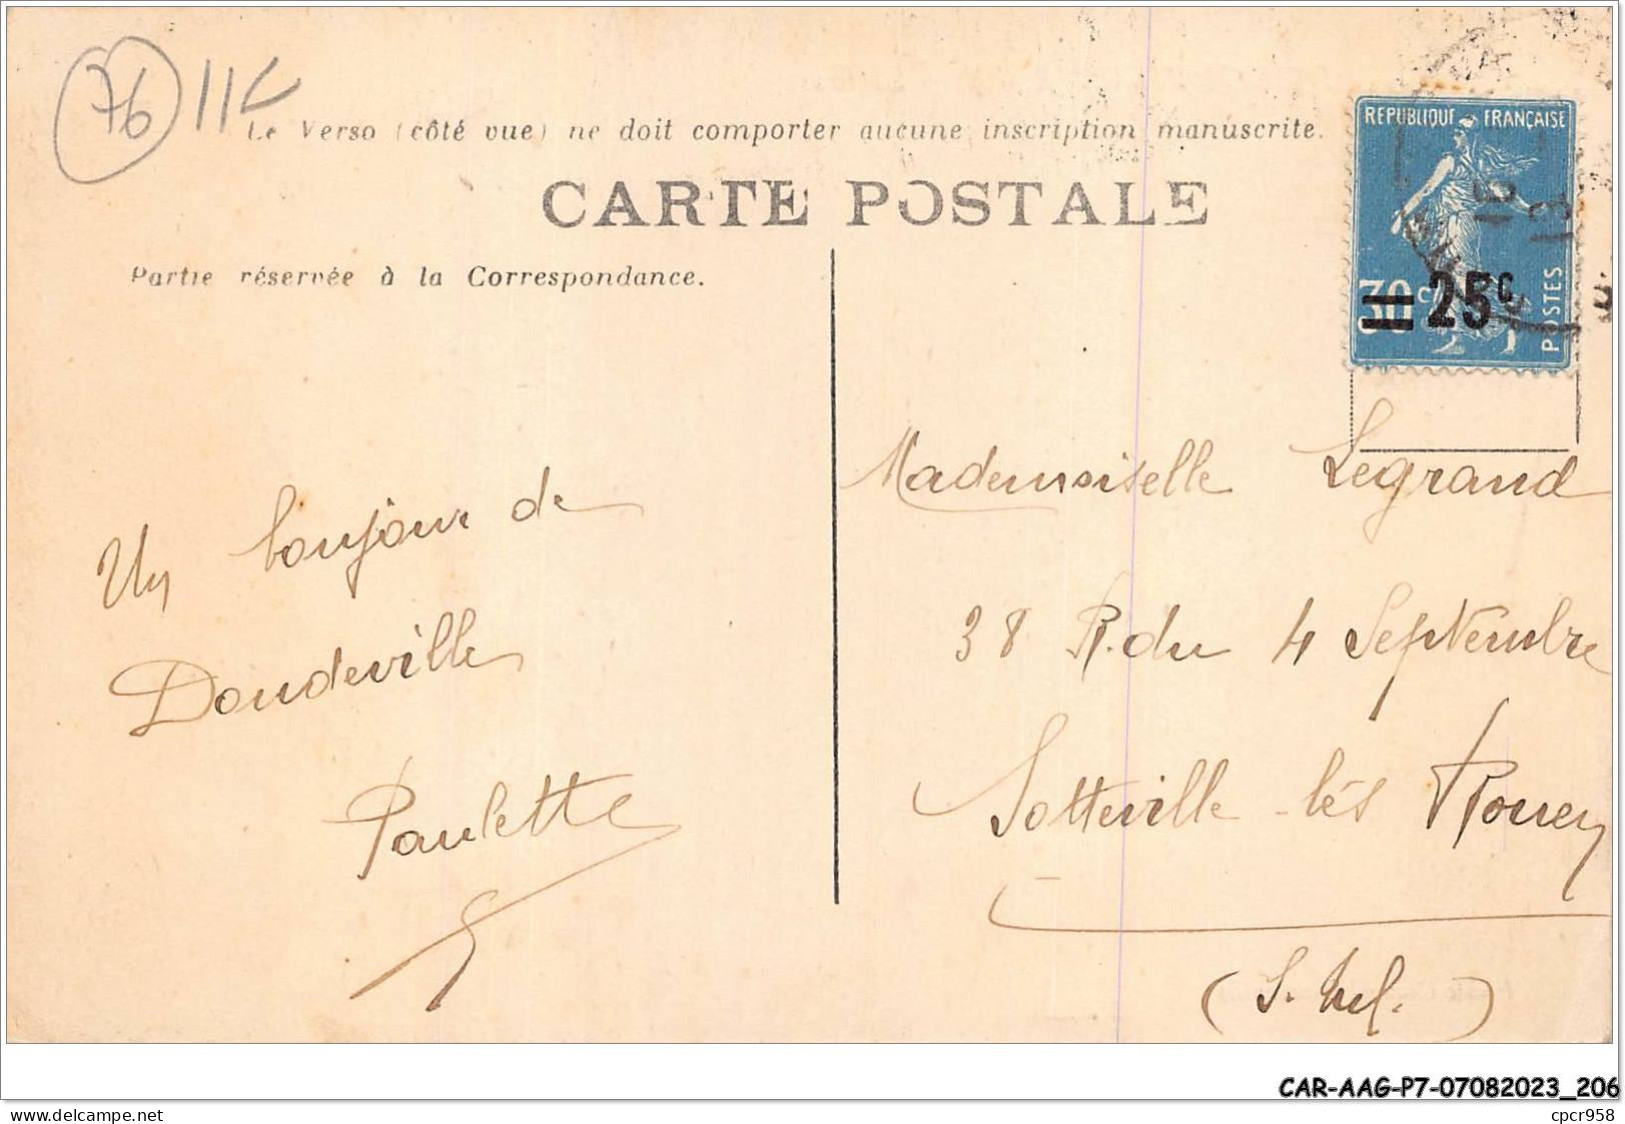 76 11
Le Verso (côté vue) ne doit comporter aucune inscription manuscrite.
CARTE POSTALE
Partie réservée à la Correspondance.
REPUBLIQUE FRANÇAISE
30c 25c
POSTES
16
13
Un bonjour de
Doudeville
Paulette
Mademoiselle Legrand
38 R. du 4 Septembre
Sotteville-lès Rouen
(S. Inf.)
CAR-AAG-P7-07082023_206
www.delcampe.net
cpcr958